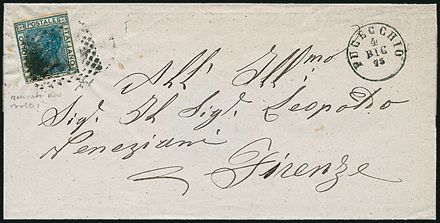 POSTALE
ITALIANO
FUCECCHIO
4
DIC
75
All' Ill.mo
Sig. Il Sig. Leopoldo
Veneziani
Firenze